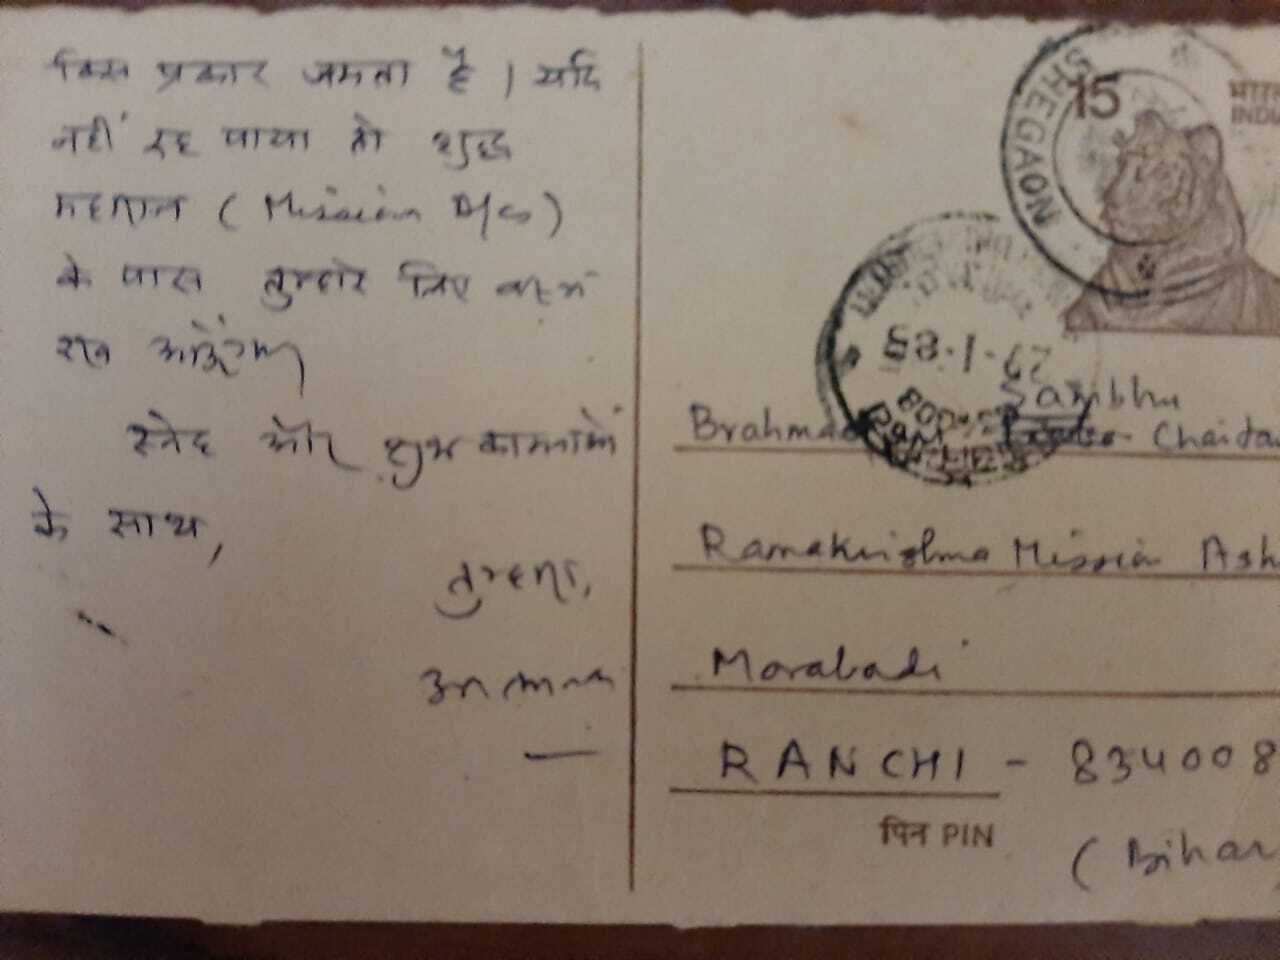 किस प्रकार जमता है। यदि
नहीं रह पाया तो शुद्ध
महाराज (Mission
के पास तुम्हारे लिए
रख आऊँगा
स्नेह और शुभकामनाओं
के साथ,
तुम्हारा,
15
भारत
INDIA
SHEGAON
Sambhu
Chaitan
Ramakrishna Mission Ash
Morabadi
RANCHI - 834008
पिन PIN
(Bihar